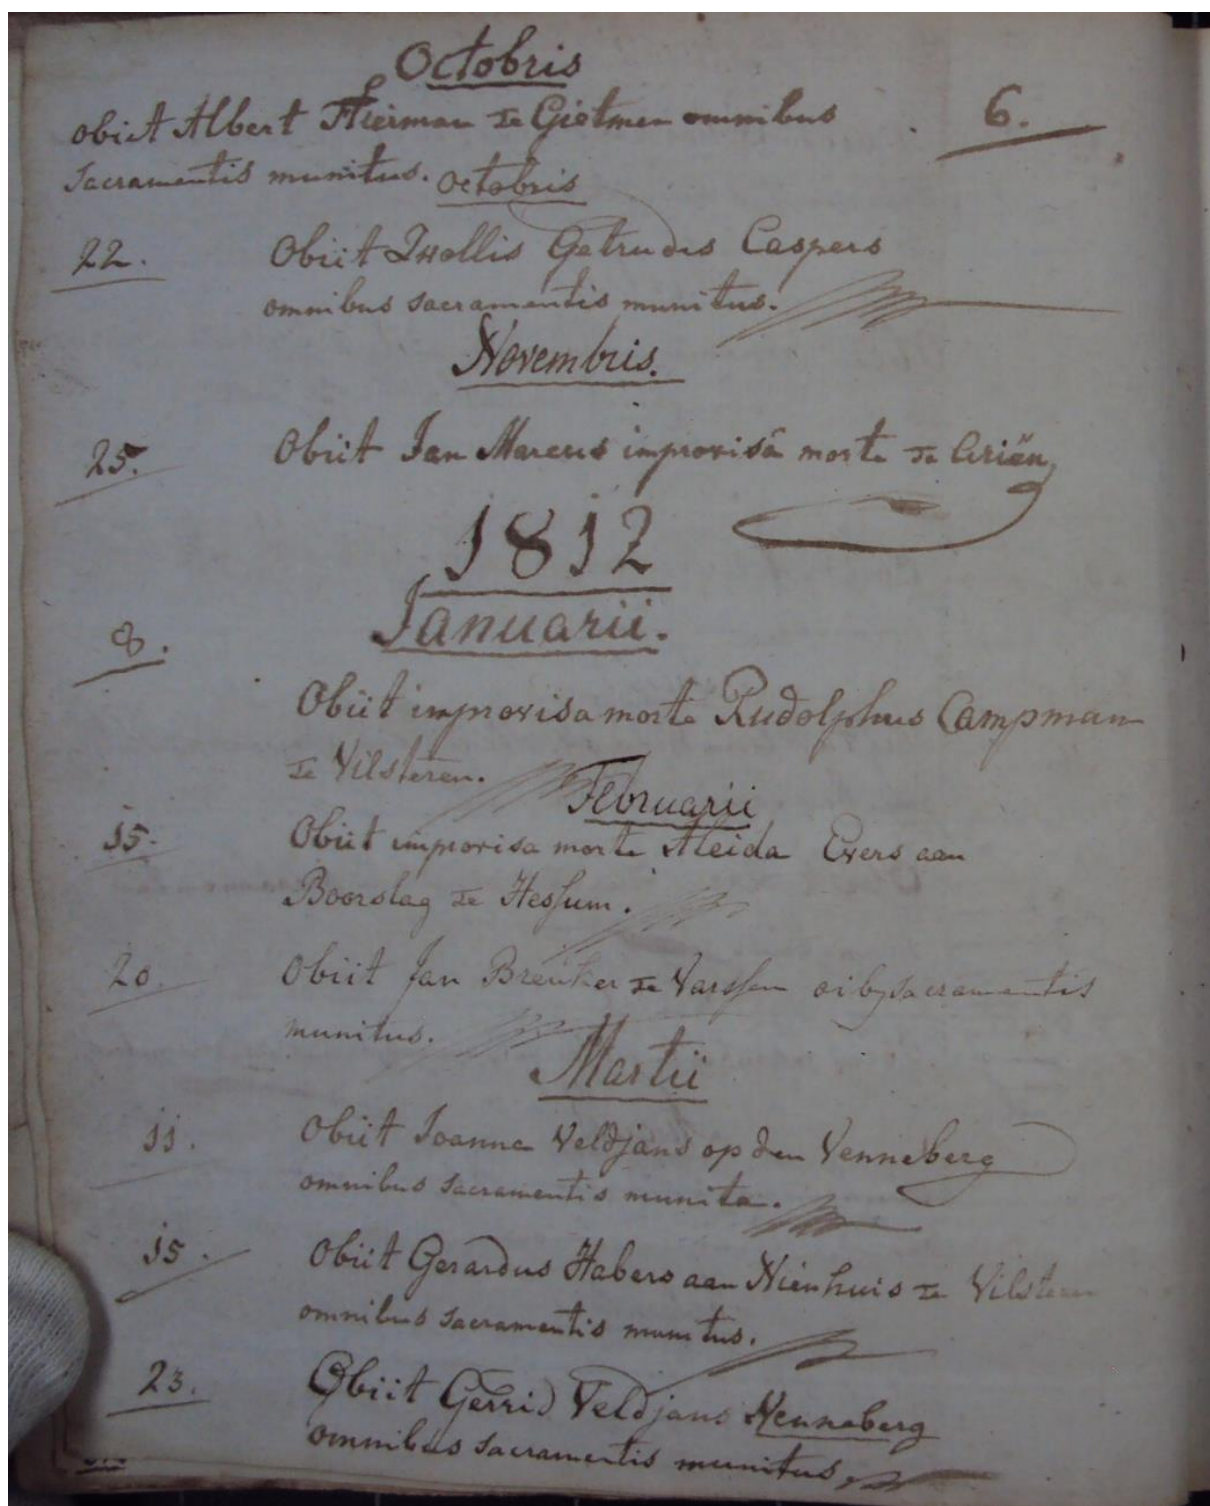 Octobris
obiit Albert Hierman te Gietmen omnibus
6.
Sacramentis munitus. octobris
22. Obiit Zwollis Getrudis Caspers
omnibus sacramentis munitus.
Novembris.
25. Obiit Jan Marcus improvisâ morte te Ariën
1812
Januarii.
8.
Obiit improvisa morte Rudolphus Campman
te Vilsteren.
Februarii
15. Obiit improvisa morte Aleida Evers aan
Boorslag te Hessum.
20. Obiit Jan Breuker te Varssen oibus sacramentis
munitus.
Martii
11. Obiit Joanna Veldjans op den Venneberg
omnibus sacramentis munita.
15. Obiit Gerardus Habers aan Nienhuis te Vilsteren
omnibus sacramentis munitus.
23. Obiit Gerrid Veldjans Venneberg
omnibus sacramentis munitus.